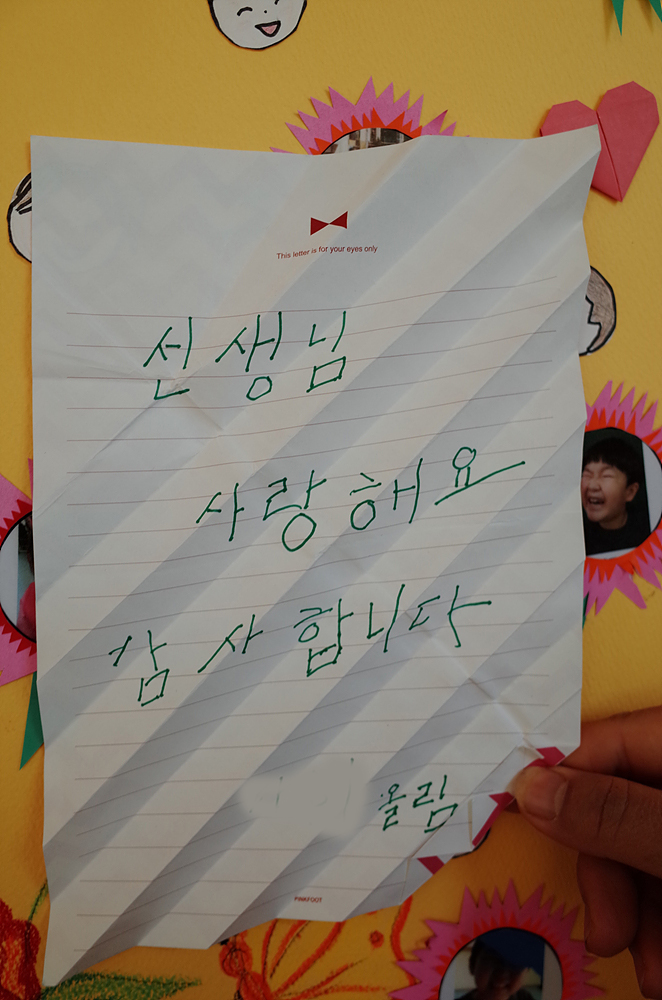 This letter is for your eyes only
선생님
사랑해요
감사합니다
올림
PINKFOOT